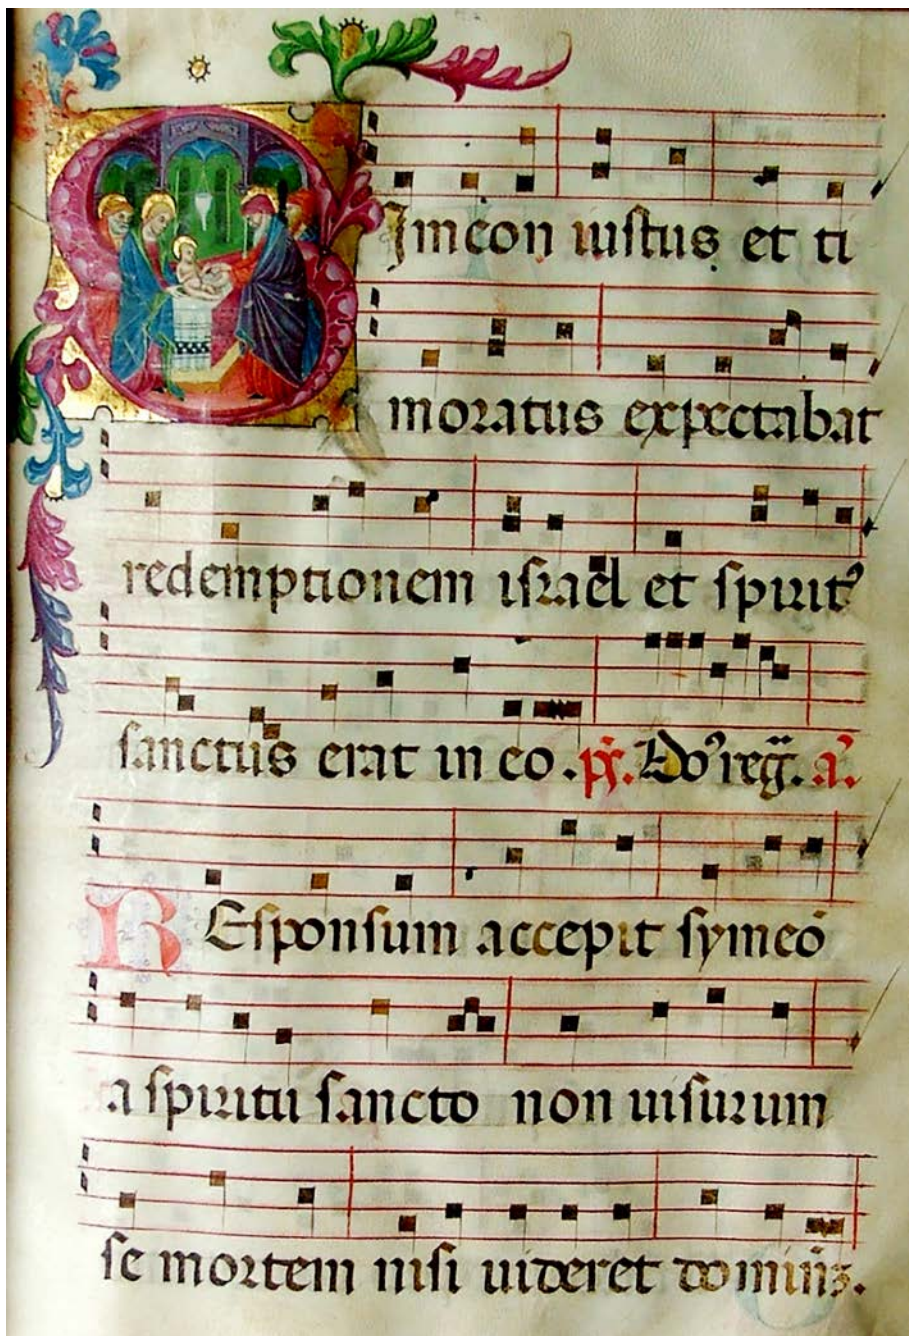 Simeon iustus et ti
moratus expectabat
redemptionem israel et spirit᾽
sanctus erat in eo . ps. Do᾽ reg̃. a᾽.
REsponsum accepit symeō
a spiritu sancto non uisurum
se mortem nisi uideret dominū.